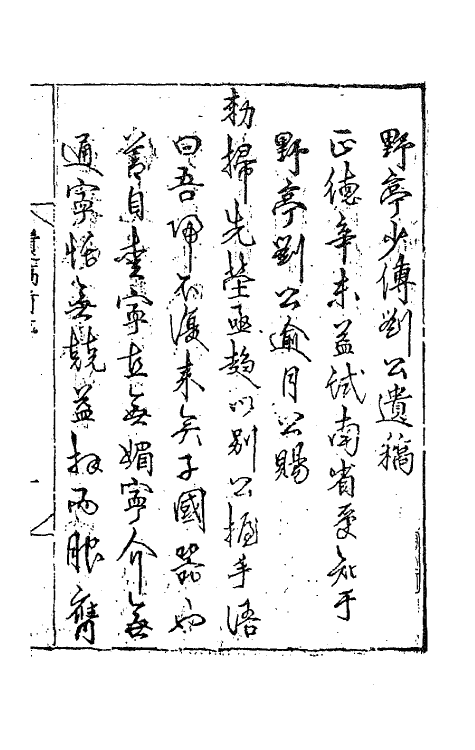 野亭少傅劉公遺稿
正德辛未益試南省受知于
野亭劉公逾月公賜
勅掃先塋亟趨以別公握手語
曰吾歸不復來矣子國器也
善自重寧直無媚寧介無
通寧恬無競益拜而服膺